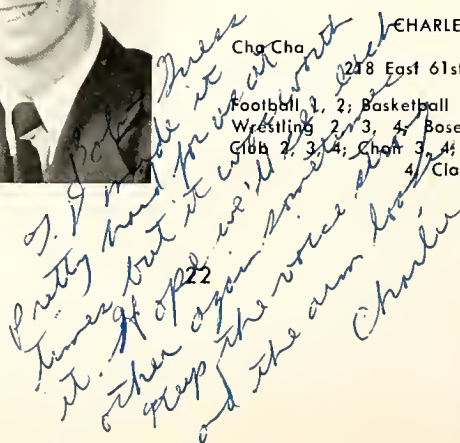 CHARLE
Cha Cha
218 East 61st
Football 1, 2; Basketball
Wrestling 2, 3, 4; Base
Club 2, 3, 4; Choir 3, 4;
4; Cla
22
Bob, Guess
T. D. made it
Pretty hard for us at
times but it was worth
it. Hope we'll see each
other again sometime
Keep the voice
and the arm loose
Charlie